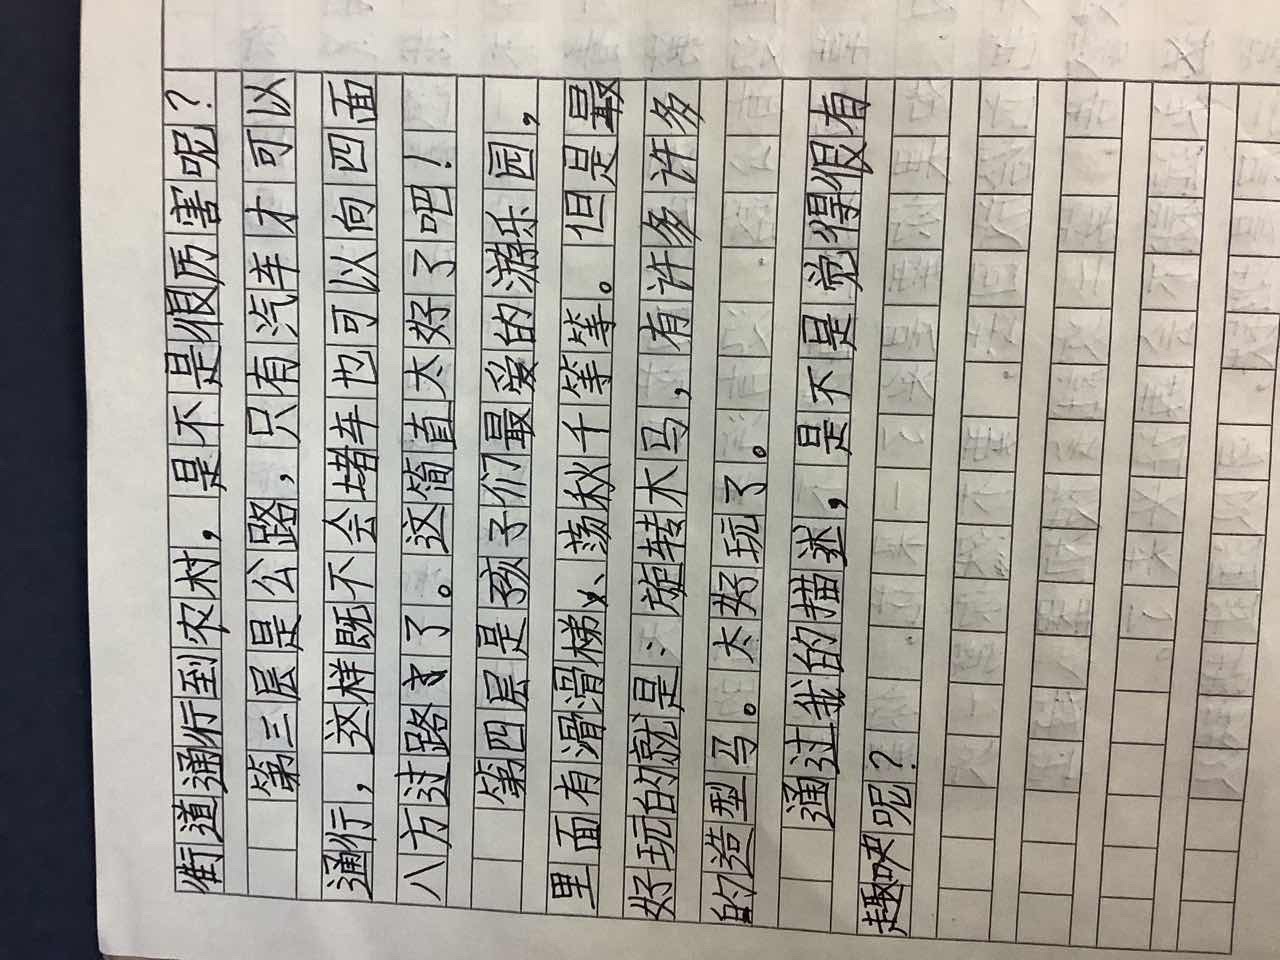 街道通行到农村，是不是很厉害呢？
第三层是公路，只有汽车才可以
通行，这样既不会堵车也可以向四面
八方过路了。这简直太好了吧！
第四层是孩子们最爱的游乐园，
里面有滑滑梯、荡秋千等等。但是最
好玩的就是：旋转木马，有许多许多
的造型马。太好玩了。
通过我的描述，是不是觉得很有
趣呢？